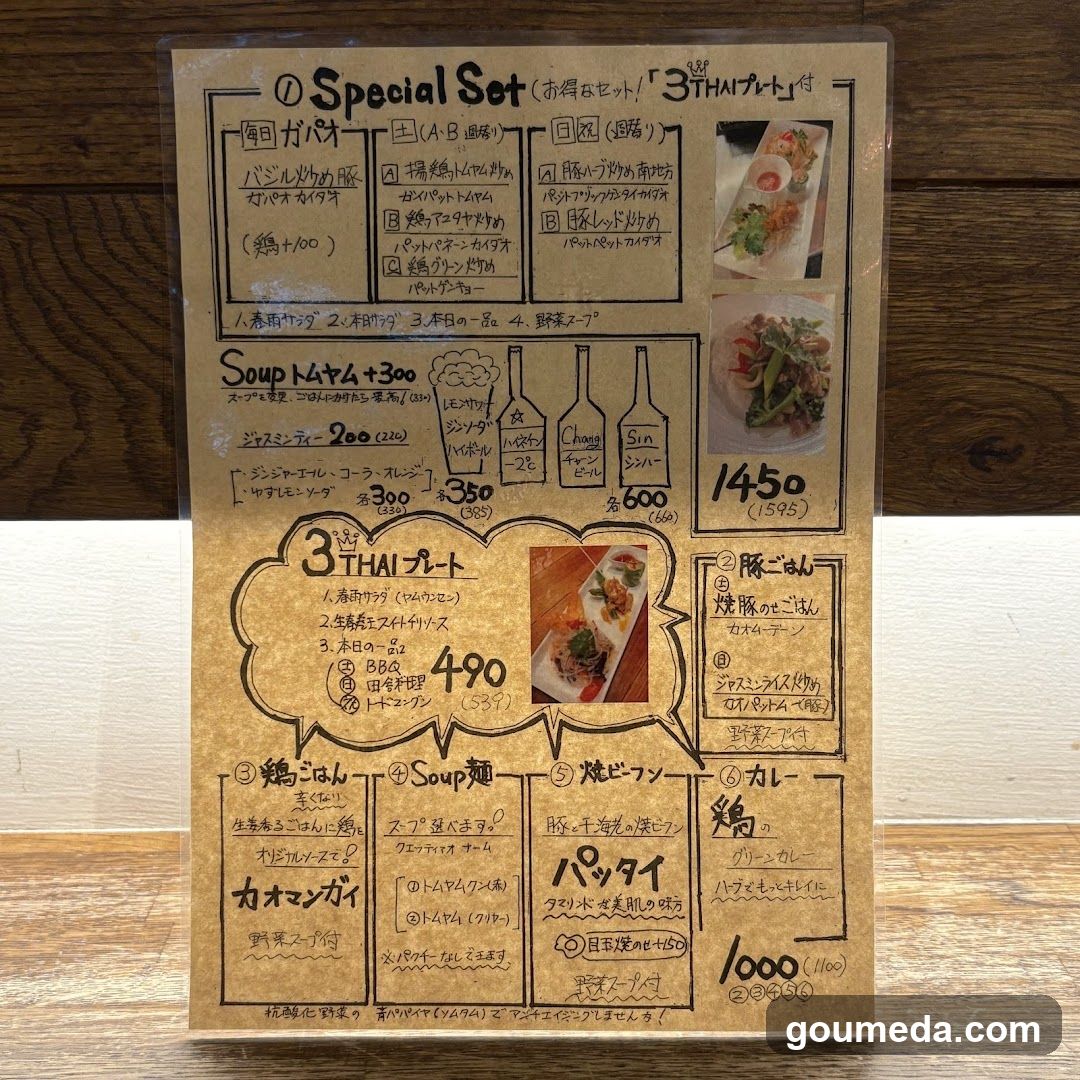 ① Special Set (お得なセット!「3THAIプレート」付
毎日 ガパオ
バジル炒め豚
ガパオ カイダオ
(鶏+100)
土 (A・B 週替り)
A 揚鶏トムヤム炒め
ガイパットトムヤム
B 鶏
パットパネーンカイダオ
C 鶏グリーン炒め
パットゲンキョー
日 祝 (週替り)
A 豚ハーブ炒め南地方
B 豚レッド炒め
パットペットカイダオ
1、春雨サラダ 2、本日サラダ 3、本日の一品 4、野菜スープ
1450
(1595)
Soup トムヤム +300
スープを変更、ごはんにかけたら最高! (330)
ジャスミンティー 200 (220)
・ジンジャーエール、コーラ、オレンジ
・ゆずレモンソーダ
各300
(330)
レモンサワー
ジンソーダ
ハイボール
各350
(385)
ハイネケン
-2℃
Chang
チャーン
ビール
Sin
シンハー
各600
(660)
3THAI プレート
1、春雨サラダ (ヤムウンセン)
2、生春巻スイートチリソース
3、本日の一品
土 BBQ
日 田舎料理
祝 トードマングン
490
(539)
② 豚ごはん
土
焼豚のせごはん
カオムーデーン
日
ジャスミンライス炒め
カオパットム (豚)
野菜スープ付
③ 鶏ごはん
辛くない
生姜香るごはんに鶏を
オリジナルソースで!
カオマンガイ
野菜スープ付
④ Soup麺
スープ選べます!
クエッティアオ ナーム
① トムヤムクン(赤)
② トムヤム (クリヤー)
※パクチーなしで出来ます
⑤ 焼ビーフン
豚と干海老の焼ビーフン
パッタイ
タマリンドは美肌の味方
目玉焼のせ+150
野菜スープ付
⑥ カレー
鶏の
グリーンカレー
ハーブでもっとキレイに
1000 (1100)
②③④⑤⑥
抗酸化野菜の 青パパイヤ(ソムタム)で アンチエイジングしませんか!
goumeda.com